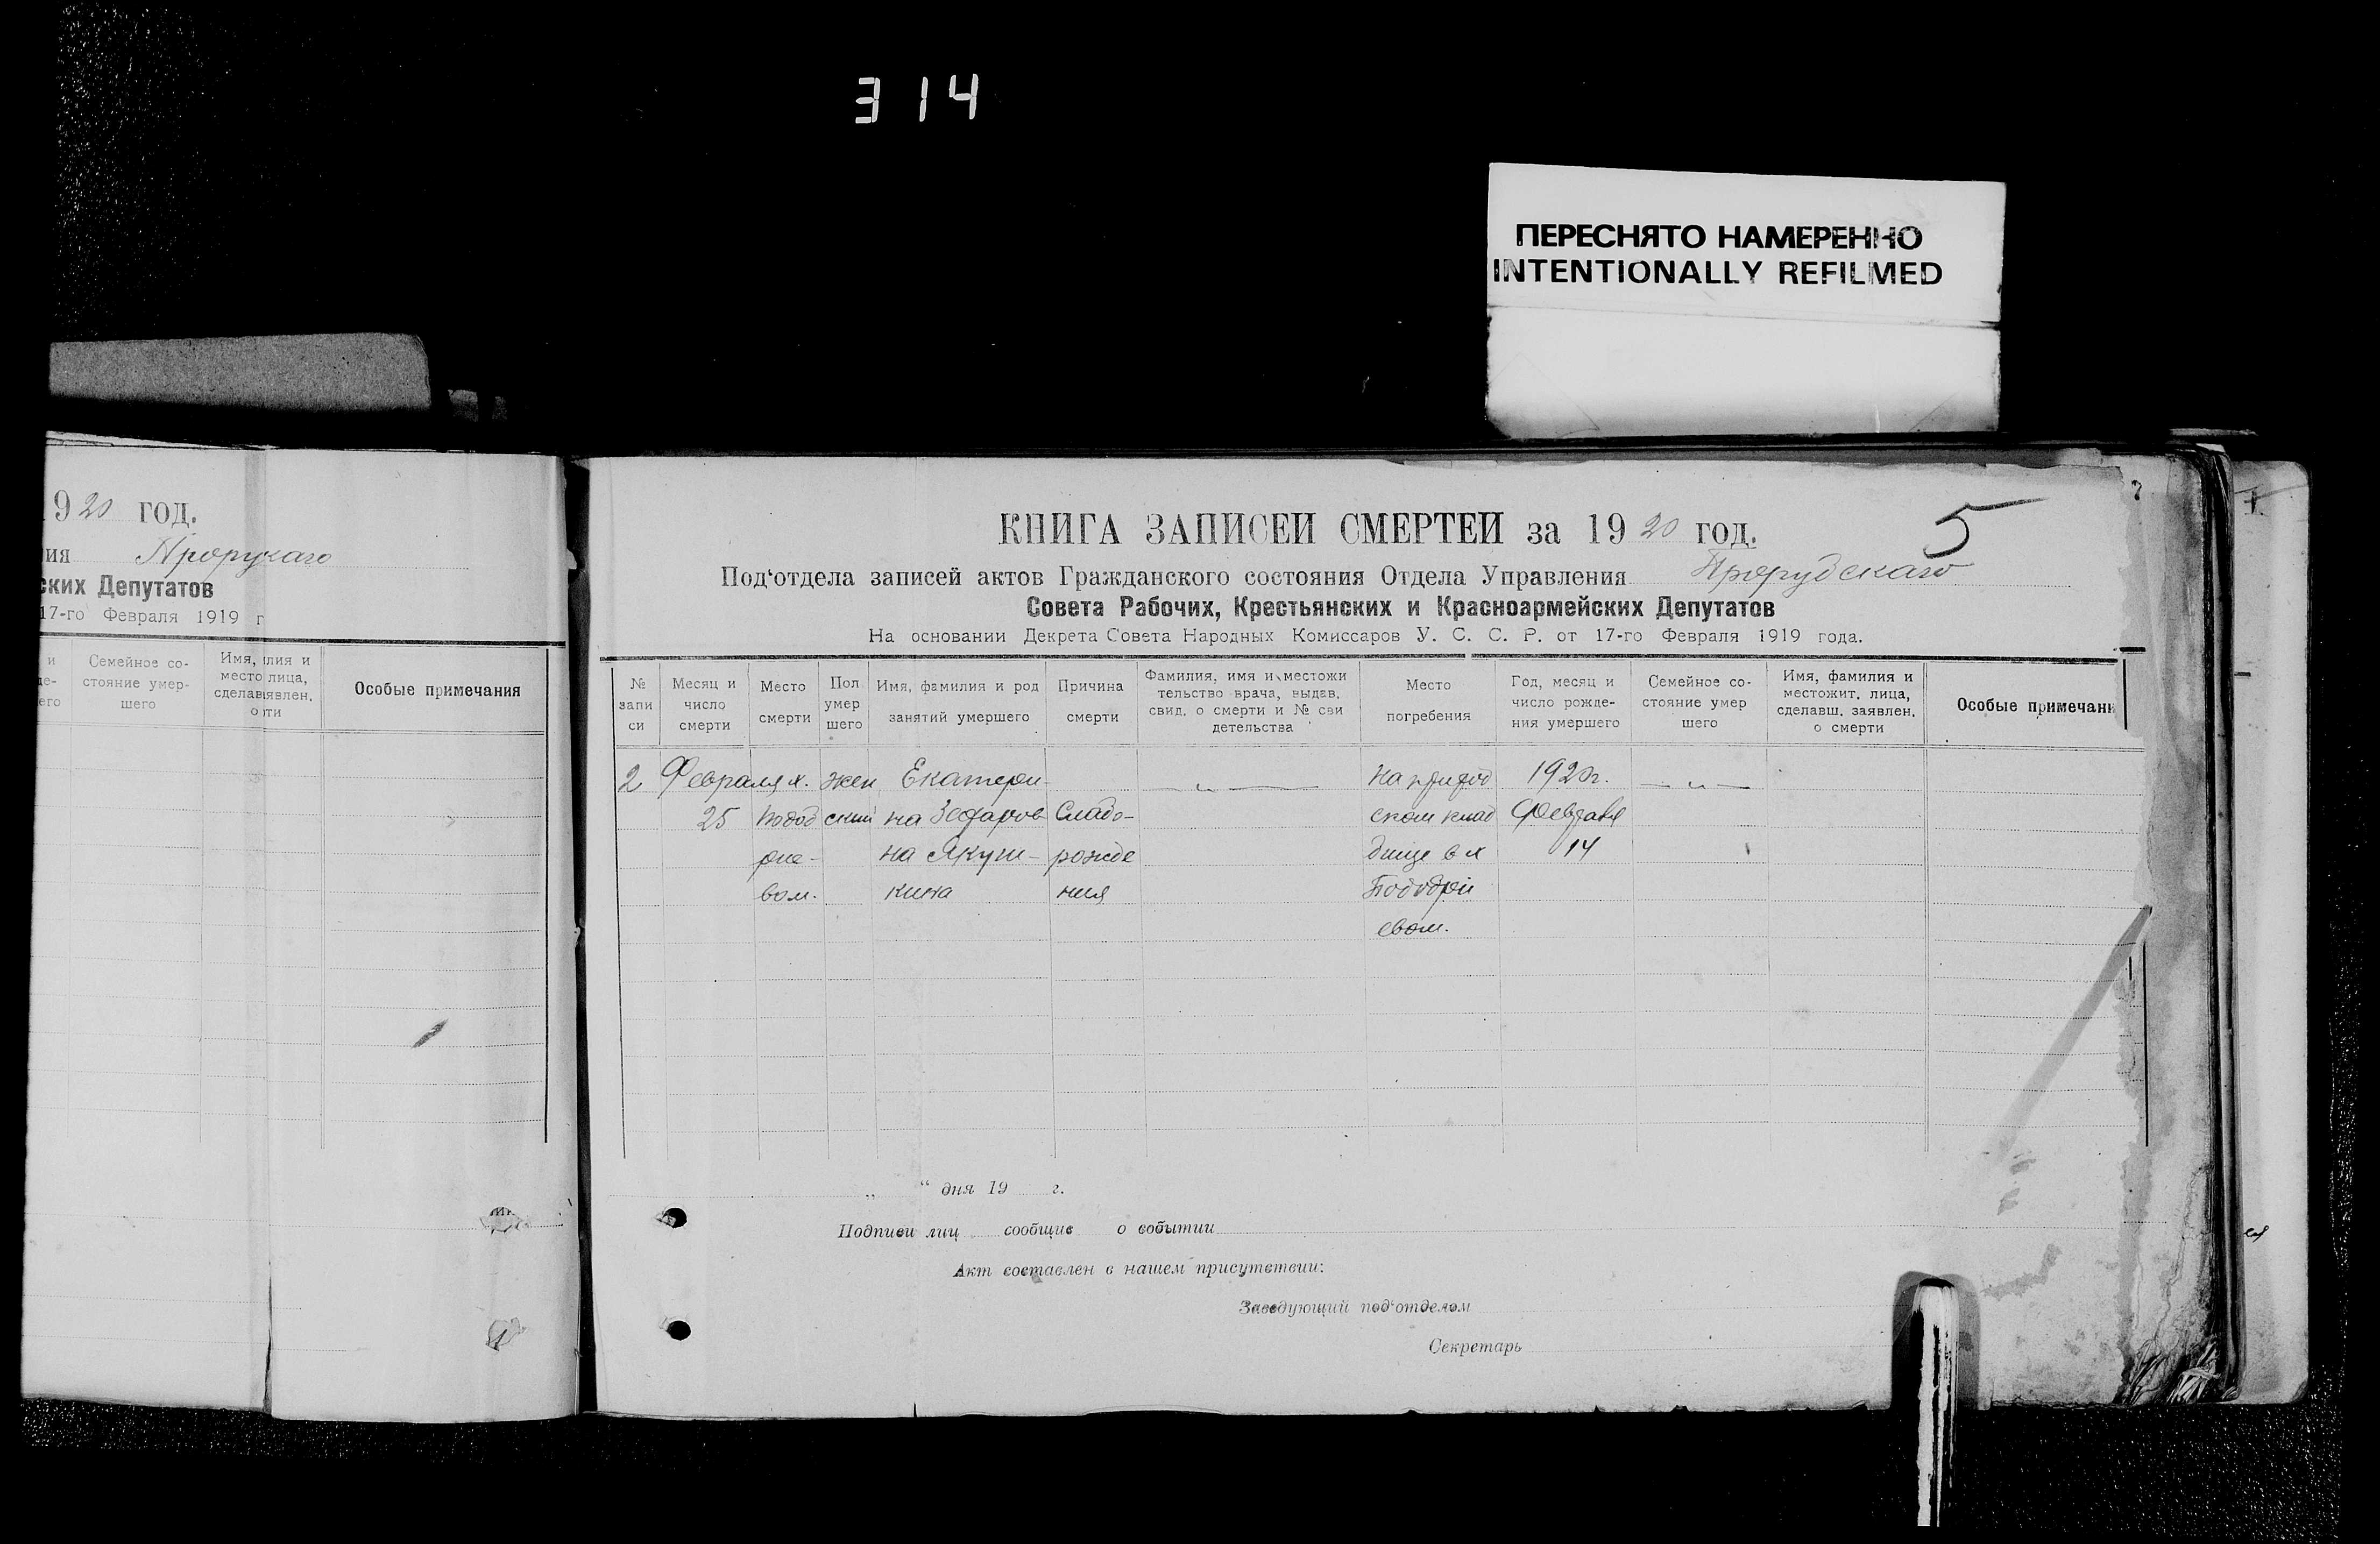 314
ПЕРЕСНЯТО НАМЕРЕННО
INTENTIONALLY REFILMED
1920 год.
ия
ских Депутатов
17-го Февраля 1919 г
Семейное со-
стояние умер-
шего
Особые примечания
5
КНИГА ЗАПИСЕЙ СМЕРТЕЙ за 1920 год.
Под‘отдела записей актов Гражданского состояния Отдела Управления
Совета Рабочих, Крестьянских и Красноармейских Депутатов
На основании Декрета Совета Народных Комиссаров У. С. С. Р. от 17-го Февраля 1919 года.
№
запи
си
Месяц и
число
смерти
Место
смерти
Пол
умер
шего
Имя, фамилия и род
занятий умершего
Причина
смерти
Фамилия, имя и местожи
тельство врача, выдав.
свид. о смерти и № сви
детельства
Место
погребения
Год, месяц и
число рожде-
ния умершего
Семейное со-
стояние умер
шего
Имя, фамилия и
местожит. лица,
сделавш. заявлен.
о смерти
Особые примечани
2 Февраля х. жен Екатери- 1920г.
25 ский на Слабо- Февраля
на Якуш- рожде дище в х 14
вом. кина ния
евом.
„ “ дня 19 г.
Подписи лиц сообщив о событии
Акт составлен в нашем присутствии:
Заведующий под‘отделом
Секретарь